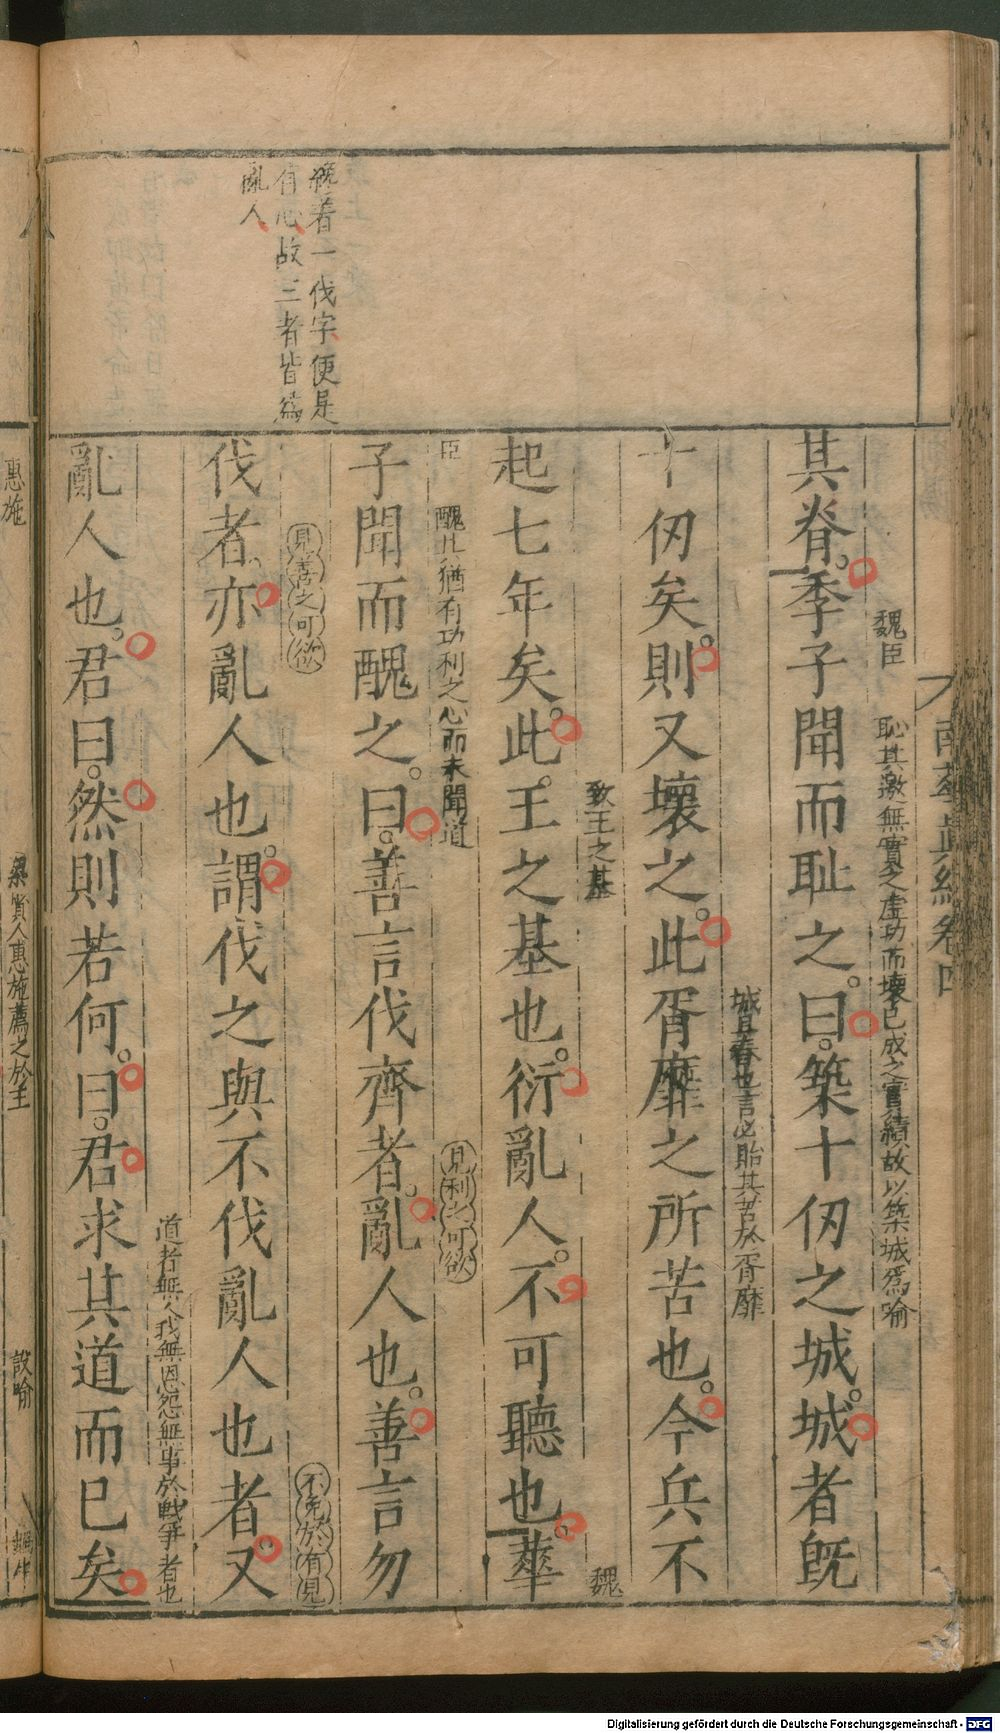 纔着一伐字便是
有心故三者皆爲
亂人
南華眞經卷四
魏臣 恥其邀無實之虛功而壞已成之實績故以築城爲喻
其脊。季子聞而恥之。曰。築十仞之城。城者旣
城旦舂也言必貽其苦於胥靡
十仞矣。則又壞之。此胥靡之所苦也。今兵不
致王之基 魏
起七年矣。此。王之基也。衍亂人。不可聽也。華
臣 醜其猶有功利之心而未聞道 見利之可欲
子聞而醜之。曰。善言伐齊者。亂人也。善言勿
見善之可欲 不免於有見
伐者。亦亂人也。謂伐之與不伐亂人也者。又
道者無人我無恩怨無事於戰爭者也
亂人也。君曰。然則若何。曰。君求其道而已矣
惠施
梁賢人惠施薦之於王 設喻
Digitalisierung gefördert durch die Deutsche Forschungsgemeinschaft - DFG